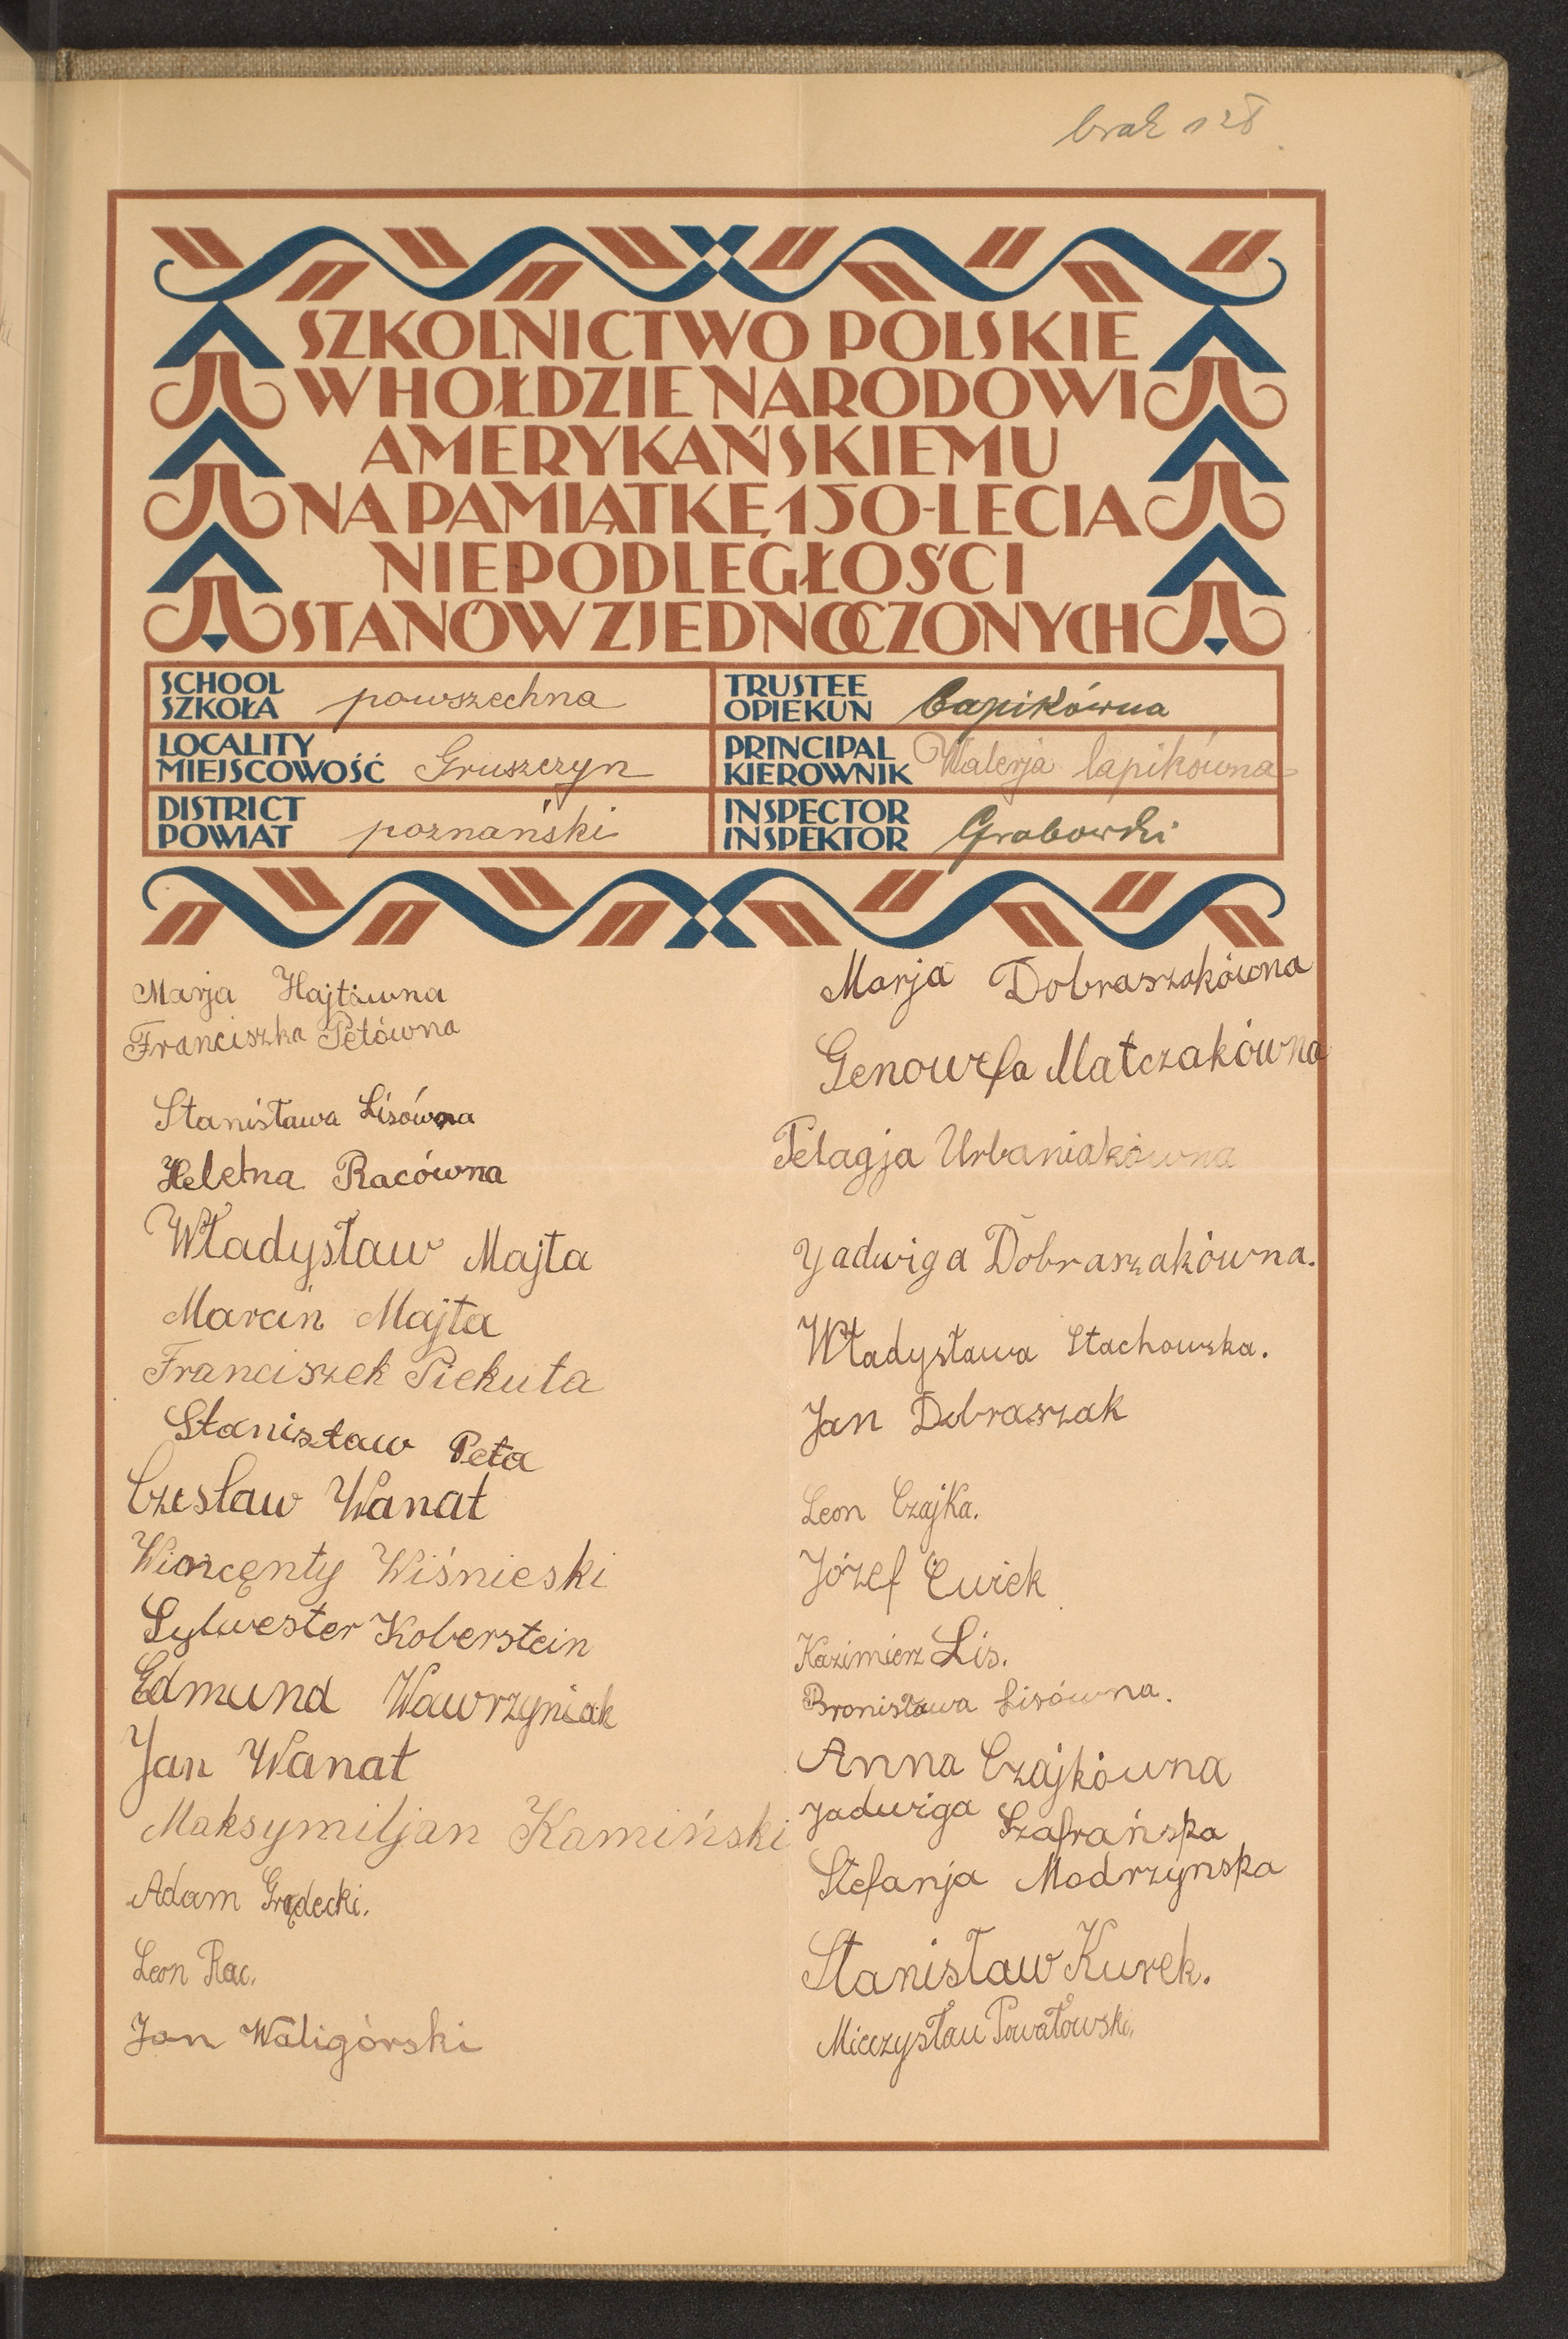 brak 128
SZKOLNICTWO POLSKIE
W HOŁDZIE NARODOWI
AMERYKAŃSKIEMU
NA PAMIĄTKĘ 150-LECIA
NIEPODLEGŁOŚCI
STANÓW ZJEDNOCZONYCH
SCHOOL
SZKOŁA powszechna
TRUSTEE
OPIEKUN Capikówna
LOCALITY
MIEJSCOWOŚĆ Gruszczyn
PRINCIPAL
KIEROWNIK Walerja Capikówna
DISTRICT
POWIAT poznański
INSPECTOR
INSPEKTOR Grabowski
Marja Hajtówna
Franciszka Petówna
Stanisława Lisówna
Helena Racówna
Władysław Majta
Marcin Majta
Franciszek Piekuta
Stanisław Peta
Czesław Wanat
Wincenty Wiśnieski
Sylwester Koberstein
Edmund Wawrzyniak
Jan Wanat
Maksymiljan Kamiński
Adam Grądecki.
Leon Rac.
Jan Waligórski
Marja Dobraszakówna
Genowefa Matczakówna
Pelagja Urbaniakówna
Jadwiga Dobraszakówna.
Władysława Stachowska.
Jan Dobraszak
Leon Czajka.
Józef Ćwiek
Kazimierz Lis.
Bronisława Lisówna.
Anna Czajkówna
Jadwiga Szafrańska
Stefanja Modrzynska
Stanisław Kurek.
Mieczysław Powałowski,